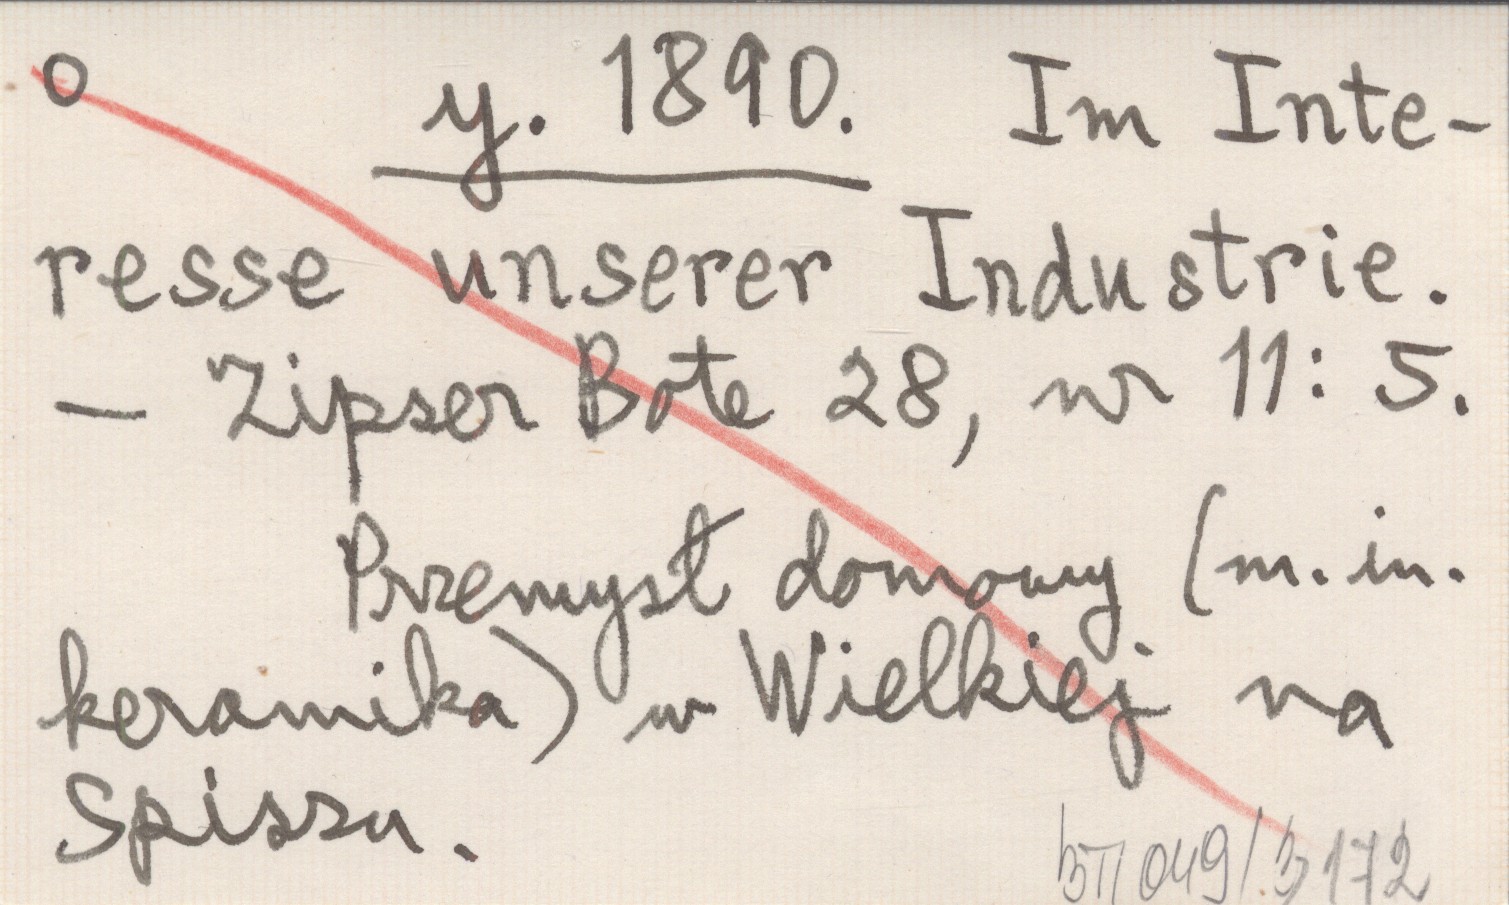 o y. 1890. Im Inte-
resse unserer Industrie.
— Zipser Bote 28, nr 11: 5.
Przemysł domowy (m. in.
keramika) w Wielkiej na
Spiszu.
049/3172